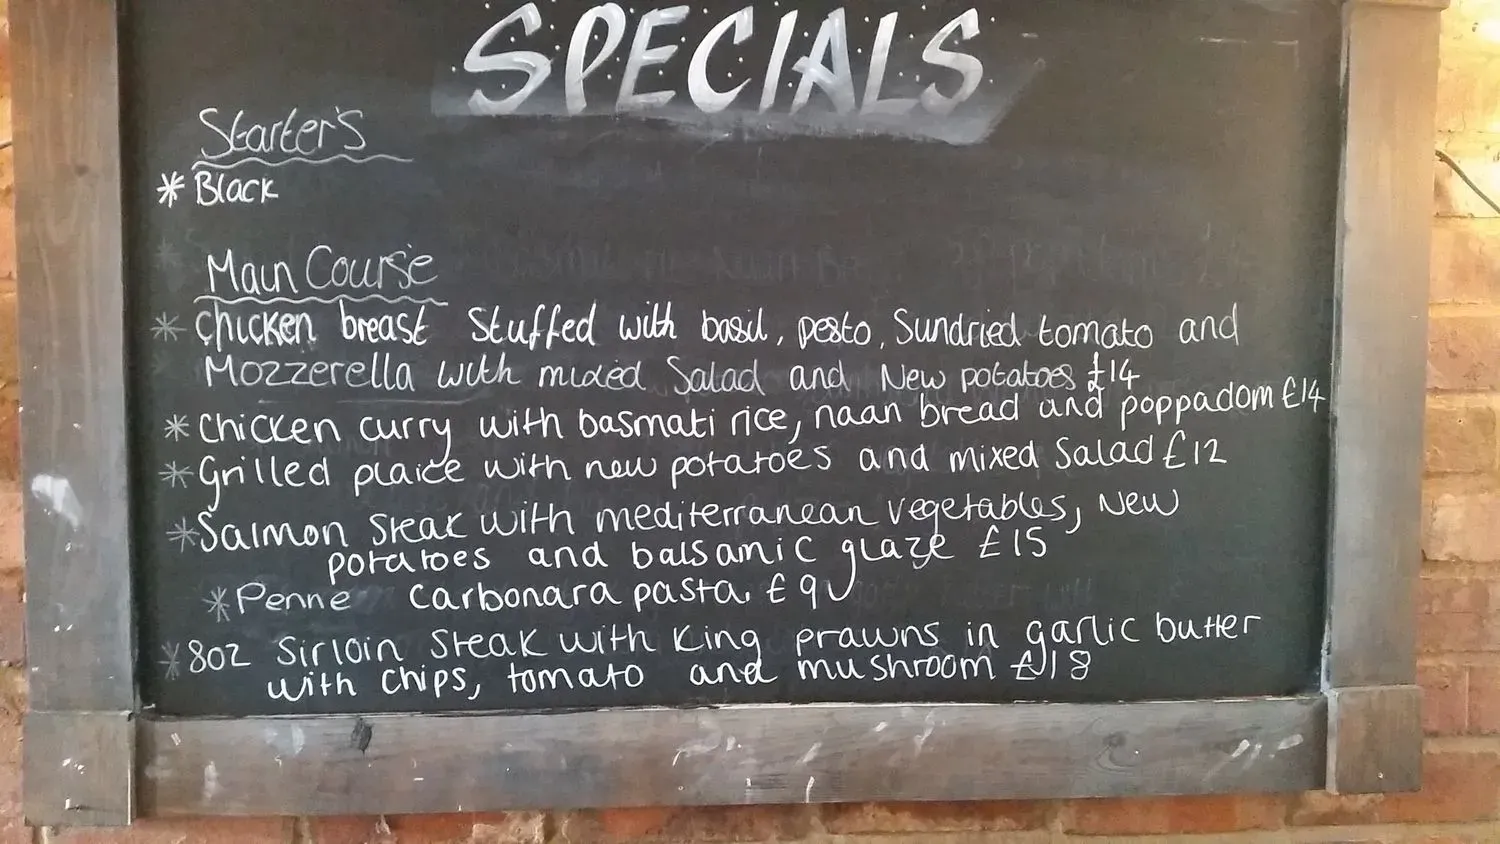 SPECIALS
Starter's
* Black
Main Course
* Chicken breast Stuffed with basil, pesto, Sundried tomato and
Mozzerella with mixed Salad and New potatoes £14
* Chicken curry with basmati rice, naan bread and poppadom £14
* Grilled plaice with new potatoes and mixed Salad £12
* Salmon Steak with mediterranean vegetables, New
potatoes and balsamic glaze £15
* Penne Carbonara pasta. £9
* 8oz Sirloin Steak with King prawns in garlic butter
with chips, tomato and mushroom £18